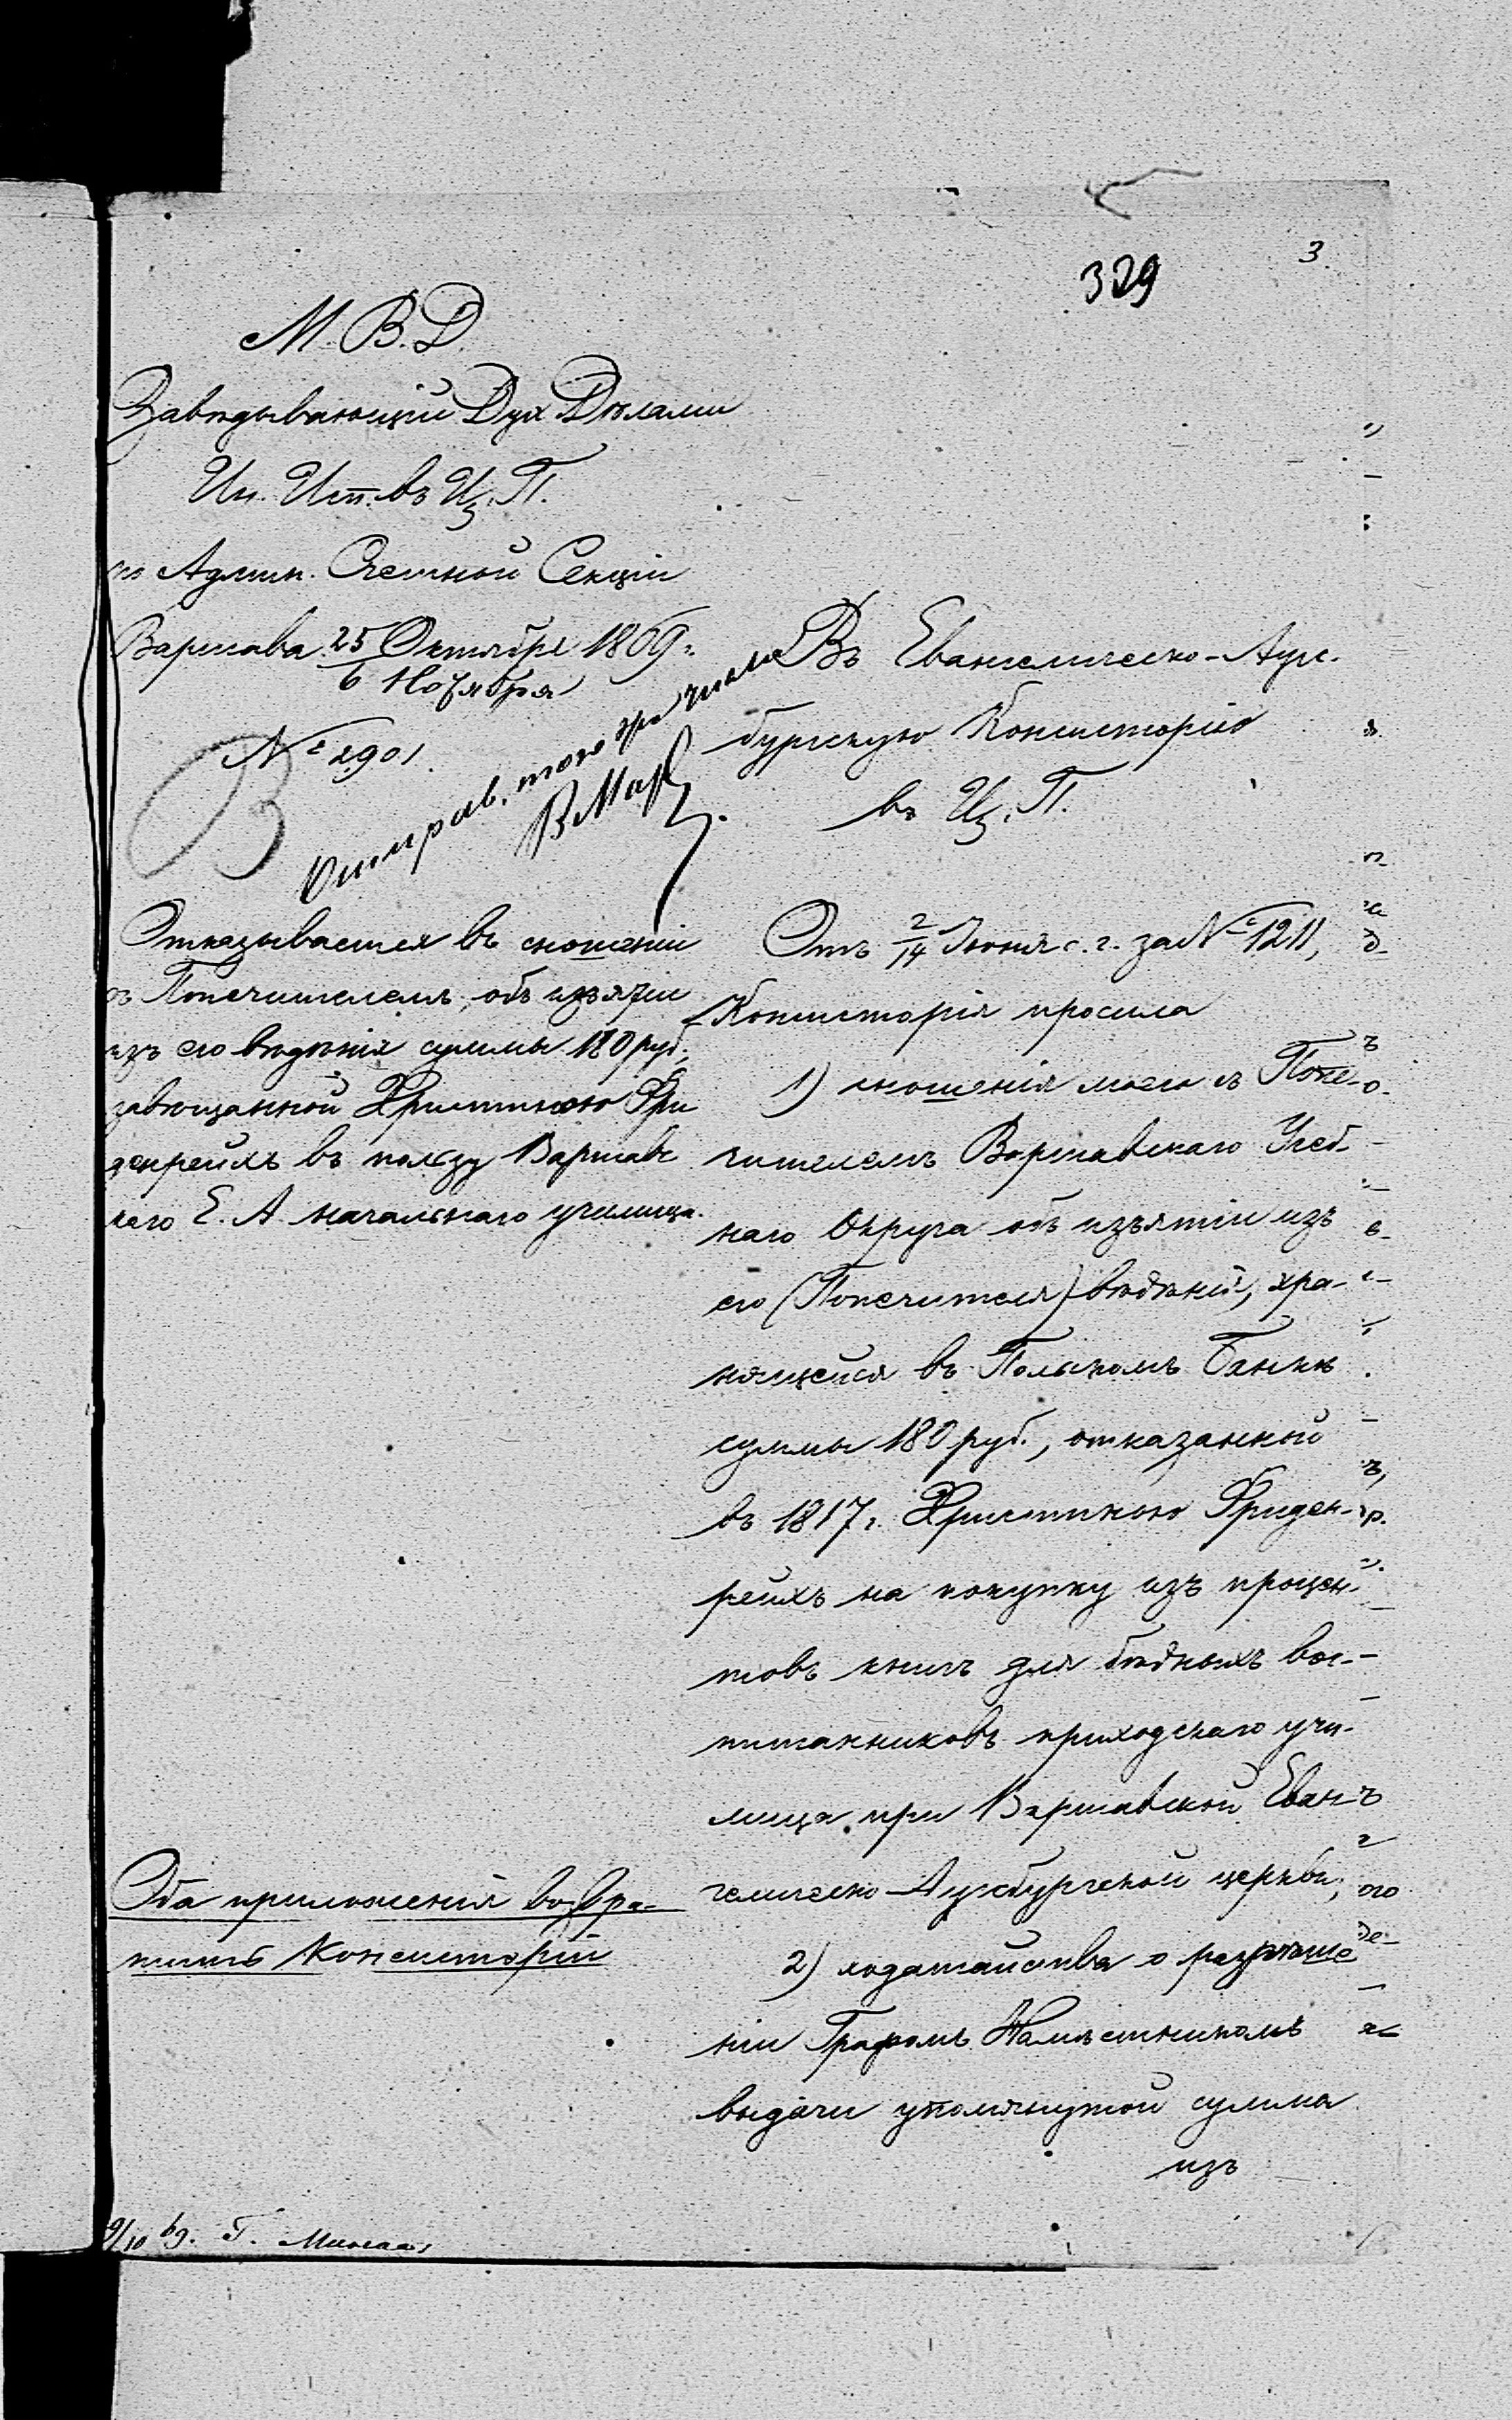 3
329
М. В. Д.
Завѣдывающій Дух Дѣлами
Ин. Исп. въ Ц. П.
по Админ. Счетной Секціи
Варшава 25 Октября 1869 г.
6 Ноября
№ 2901.
Отправ. того же числа
Въ Евангелическо-Аугс-
бургскую Консисторію
въ Ц. П.
Отказывается въ сношеніи
съ Попечителемъ, объ изъятіи
изъ его вѣдѣнія суммы 180 руб.,
завѣщанной Христиною Фри
денрейхъ въ пользу Варшавс
каго Е. А. начальнаго училища.
Отъ 2/14 Іюня с. г. за № 1211,
Консисторія просила
1) сношенія моего съ Попе-
чителемъ Варшавскаго Учеб-
наго Округа объ изъятіи изъ
его (Попечителя) вѣдѣнія, хра-
нящейся въ Польскомъ Банкѣ
суммы 180 руб., отказанной
въ 1817 г. Христиною Фриден-
рейхъ на покупку изъ процен-
товъ книгъ для бѣдныхъ вос-
питанниковъ приходскаго учи-
лища при Варшавской Еван-
гелическо-Аугсбургской церкви;
2) ходатайства о разрѣше
ніи Графомъ Намѣстникомъ
выдачи упомянутой суммы
изъ
Оба приложенія возвра-
тить Консисторіи
9/10 69. Г.